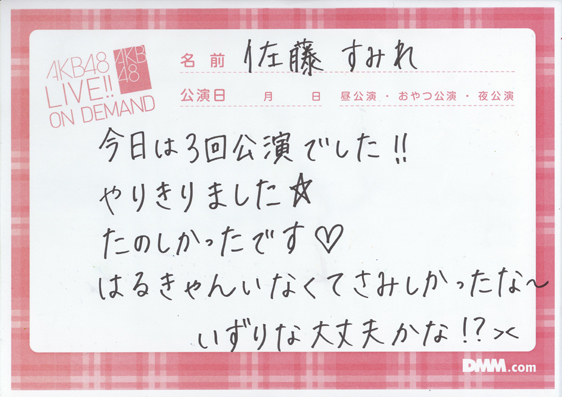 AKB48
LIVE!!
ON DEMAND
AKB
48
名前 佐藤 すみれ
公演日 月 日 昼公演・おやつ公演・夜公演
今日は3回公演でした!!
やりきりました☆
たのしかったです♡
はるきゃんいなくてさみしかったな〜
いずりな大丈夫かな!?><
DMM.com